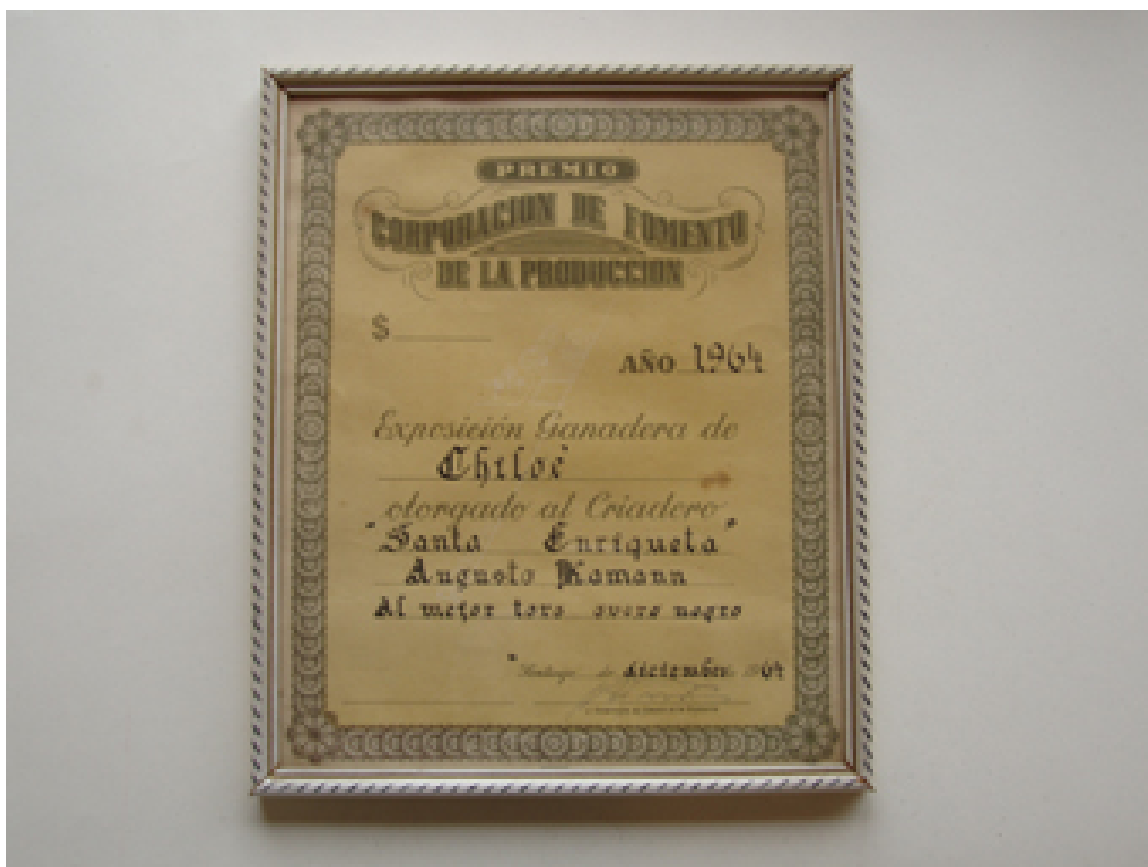 PREMIO
CORPORACION DE FOMENTO
DE LA PRODUCCION
$
AÑO 1964
Exposición Ganadera de
Chiloé
otorgado al Criadero
"Santa Enriqueta"
Augusto Kamann
Al mejor toro overo negro
Santiago de diciembre 1964